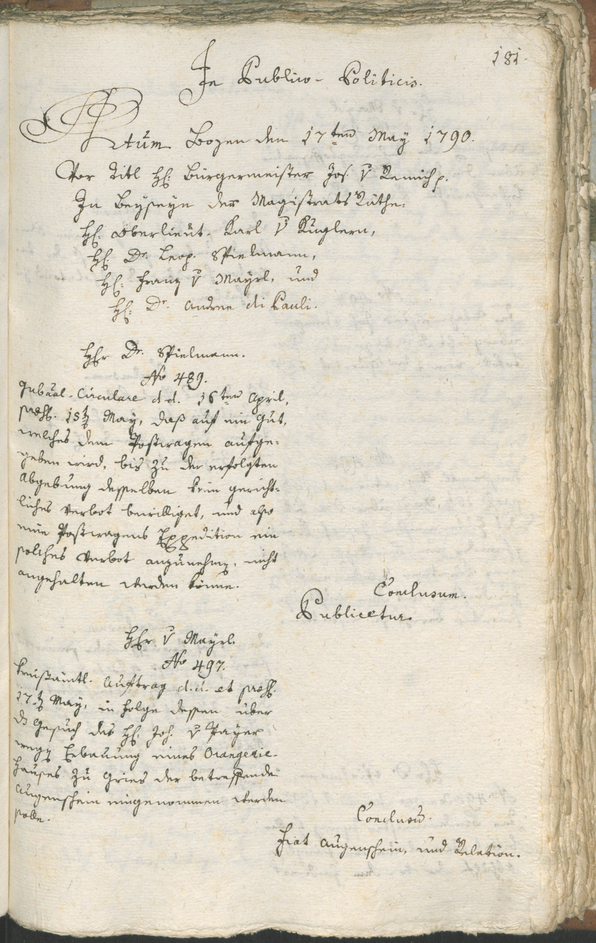 181.
In Publico-Politicis.
Actum Bozen den 17ten May 1790.
Vor Titl. H: Bürgermeister Jos. v Remich p.
In Beyseyn der Magistrats Räthe.
H: Oberlieut. Karl v Kuglern,
H: Dr. Leop. Spielmann,
H: Franz v Mayrl, und
H: Dr. Andree di Pauli.
Hhr Dr. Spielmann.
No 489.
Gubnal-Circulare d.d. 16ten April,
praes. 15t May, daß auf ein Gut,
welches dem Postwagen aufge-
geben wird, bis zu der erfolgten
Abgebung desselben kein gericht-
liches Verbot bewilliget, und also
eine Postwagens Expedition ein
solches Verbot anzunehmen, nicht
angehalten werden könne.
Conclusum.
Publicetur.
Hhr v Mayrl.
No 497.
Kreisämtl. Auftrag d.d. et praes.
17t May, in Folge dessen über
das Gesuch des H: Joh. v Payer
wegen Erbauung eines Orangerie-
hauses zu Gries der betreffende
Augenschein eingenommen werden
solle.
Conclus.
Fiat Augenschein, und Relation.